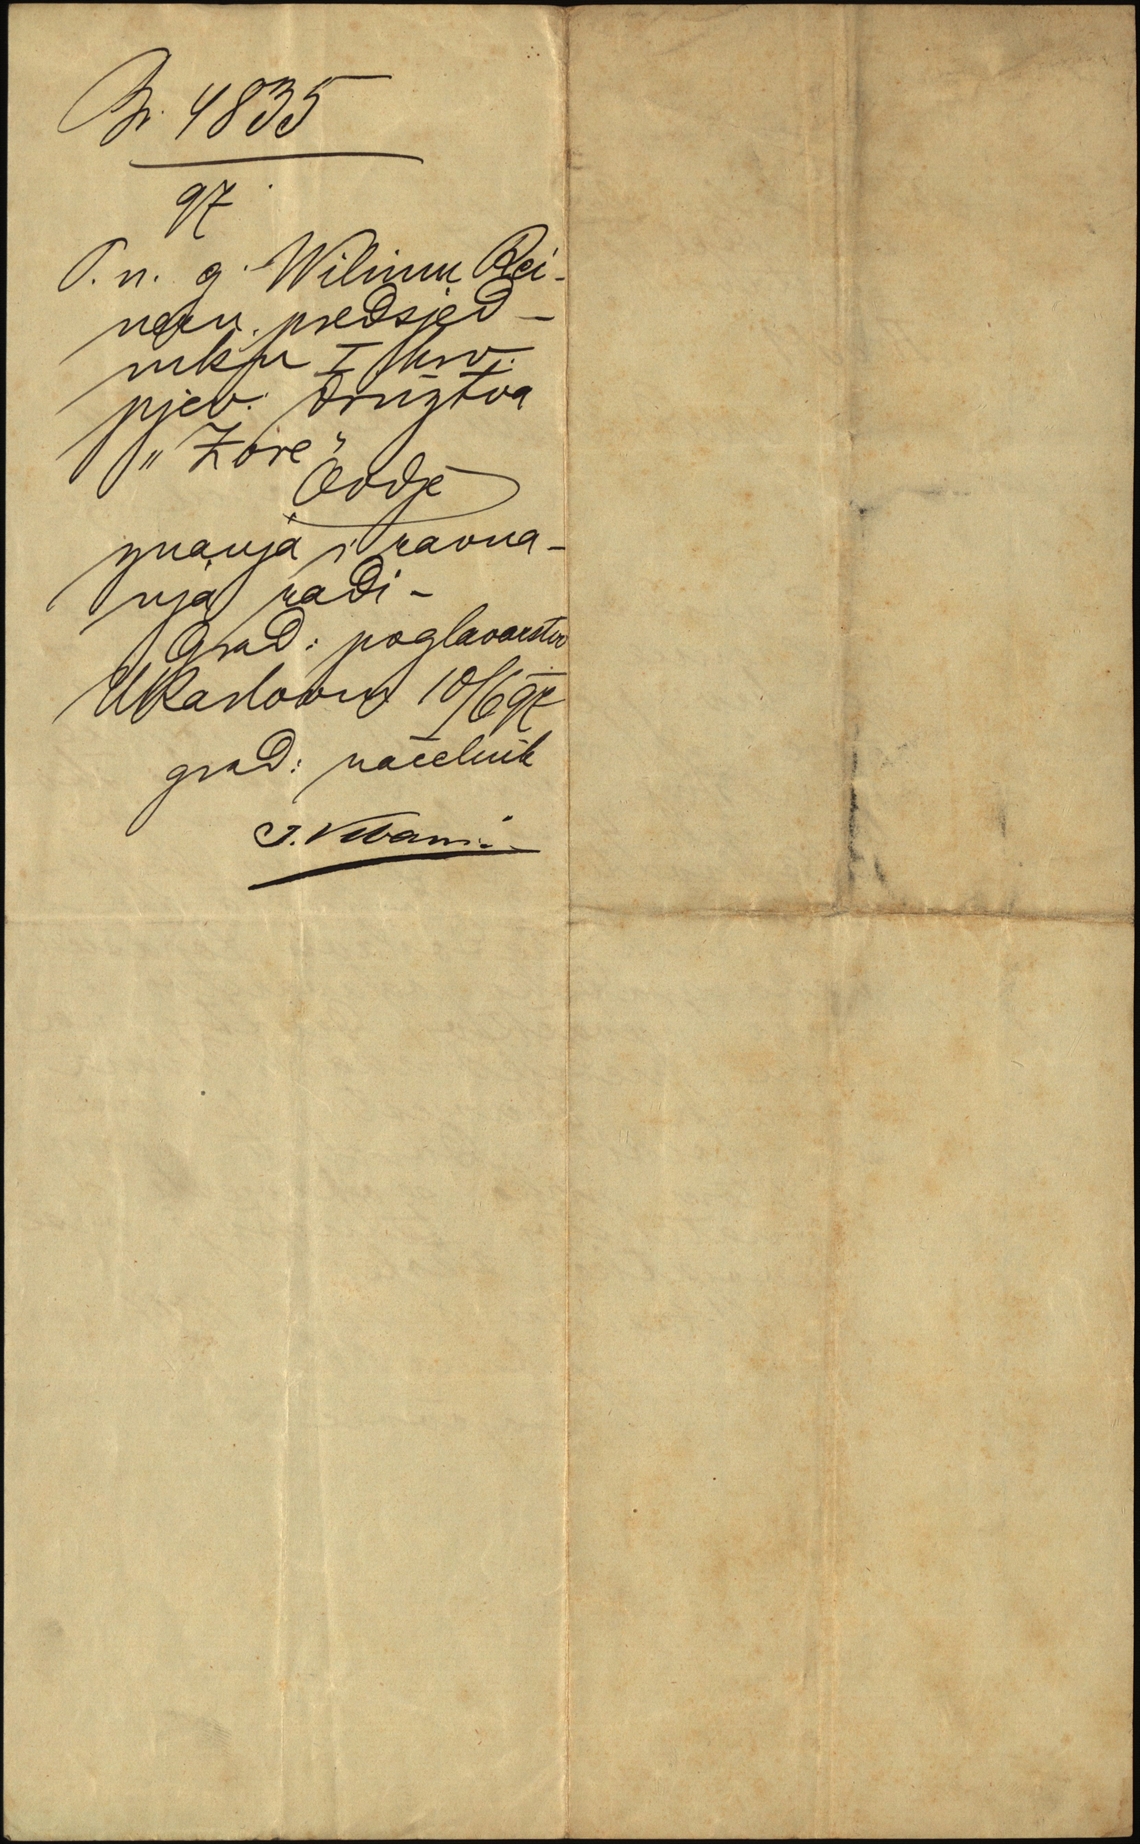 Br. 4835
97
P. n. g. Wilimu Rei-
neru, predsjed-
niku I hrv.
pjev. družtva
„Zore"
Ovdje
znanja i ravna-
nja radi -
Grad: poglavarstvo
U Karlovcu 10/6 97
grad: načelnik